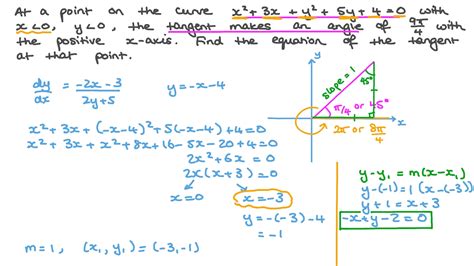 At a point on the curve x² + 3x + y² + 5y + 4 = 0 with
x<0, y<0, the tangent makes an angle of 9π/4 with
the positive x-axis. Find the equation of the tangent
at that point.
dy/dx = (-2x-3)/(2y+5)
y = -x-4
x² + 3x + (-x-4)² + 5(-x-4) + 4 = 0
x² + 3x + x² + 8x + 16 - 5x - 20 + 4 = 0
2x² + 6x = 0
2x(x+3) = 0
x = 0
x = -3
y = -(-3)-4
= -1
m = 1, (x₁, y₁) = (-3, -1)
y
slope = 1
45°
π/4 or 45°
x
2π or 8π/4
y - y₁ = m(x - x₁)
y - (-1) = 1(x - (-3))
y + 1 = x + 3
-x + y - 2 = 0